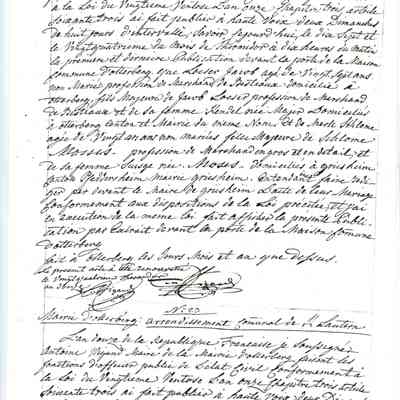 à la Loi du Vingtieme Ventose L'an onze, Chapitre trois article
Soixante trois ai fait publié à haute Voix deux Dimanches
de huit jours d'intervalle, Savoir aujourd'hui, le dix Sept et
le Vingtquatrieme du Mois de thermidor à dix heures du matin
la premiere et derniere Publication devant la porte de la Maison
Commune d'otterberg, que Loeser Jacob agé de Vingt Sept ans
non Marié profession de Marchand de Bestiaux domicilié à
otterberg, fils Majeur de Jacob Loeser profession de Marchand
de Bestiaux et de sa femme Hendel née Major Domiciliés
à otterberg canton et Mairie du meme Nom. Et de Marie Schlome
agée de Vingt ans non mariée fille Majeure de Schlome
Moses profession de Marchand en gros et en détail, et
de sa femme née Moses. domiciliés à griesheim
canton Pfeddersheim mairie griesheim. Entendant faire rédi-
ger par devant le Maire de griesheim L'acte de leur Mariage
Conformement aux dispositions de la Loi précitée, et j'ai
en execution de la meme loi fait afficher la presente Publi-
cation par Extrait devant la porte de la Maison Commune
d'otterberg
fait à otterberg les Jours Mois et an que dessus.
Le présent acte a été
le Vingtquatrieme thermidor
an douze
No. 23
Mairie d'otterberg arrondissement comunal de K. Lautern
L'an douze de la Republique Francaise je Soussigné
Antoine Maire de la Mairie d'otterberg faisant les
fonctions d'officier public de L'etat Civil Conformement à
la Loi du Vingtieme Ventose L'an onze Chapitre trois article
Soixante trois ai fait publié à haute Voix deux